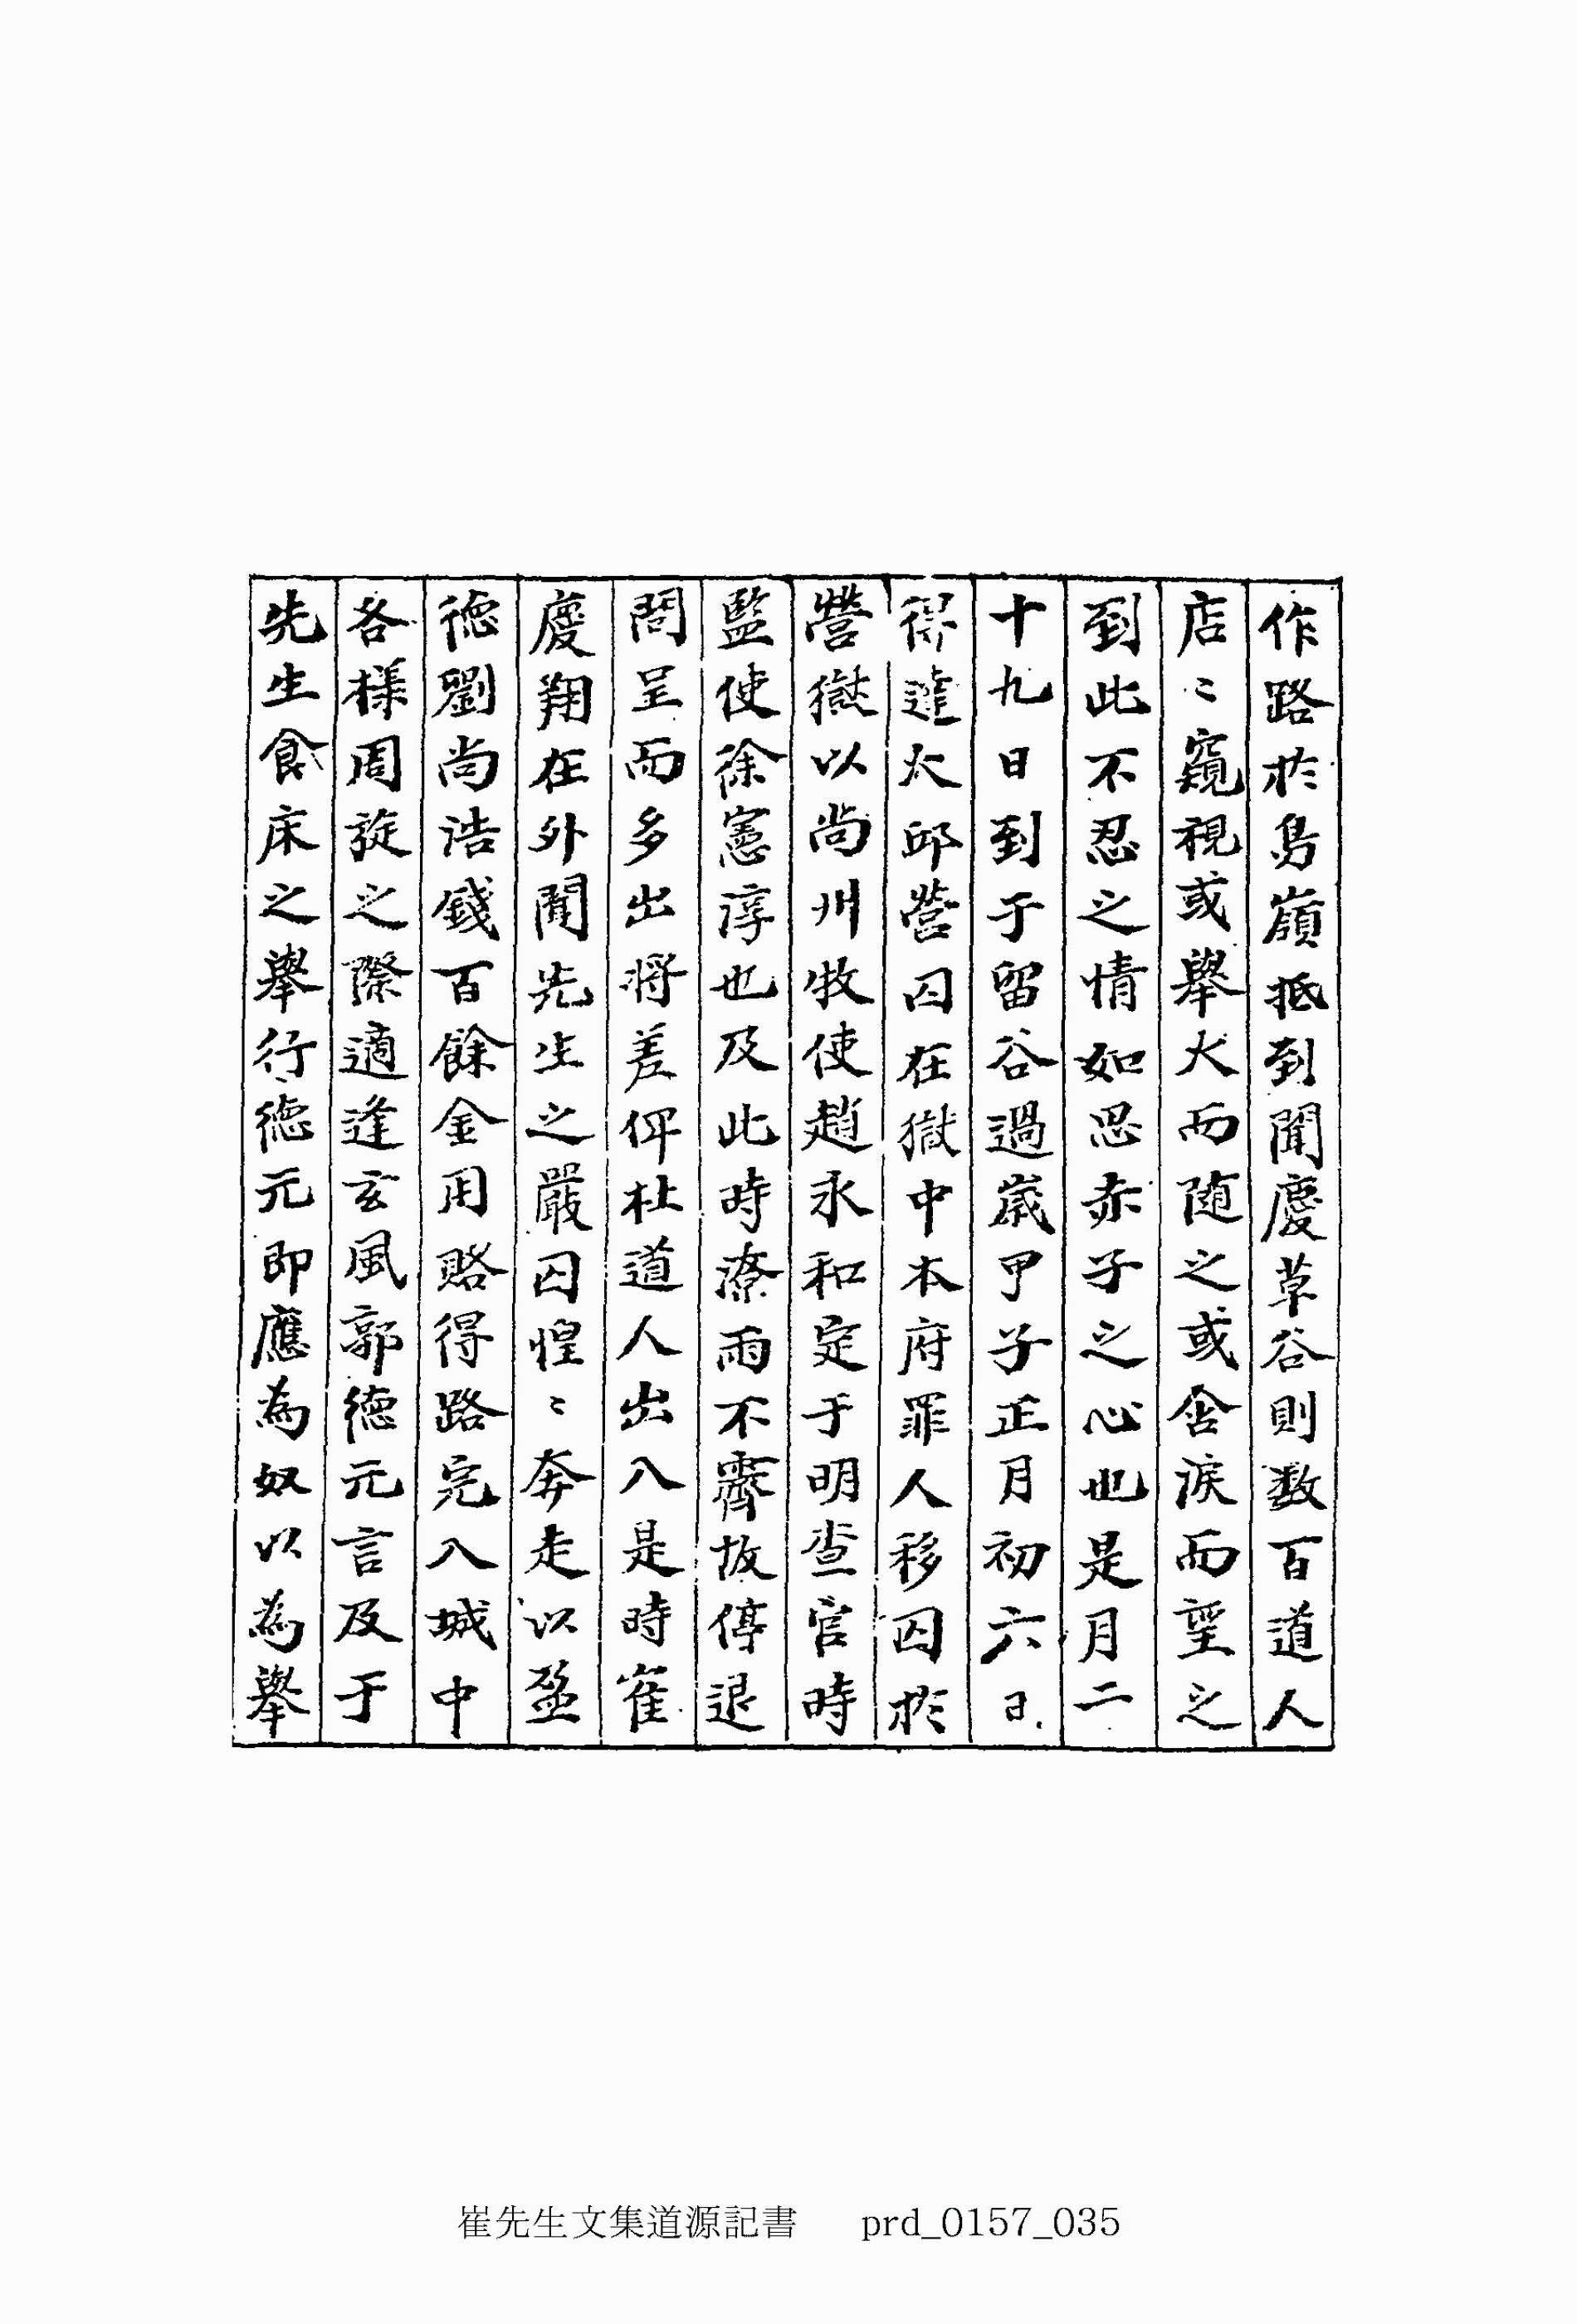 作路於鳥嶺抵到聞慶草谷則数百道人
店〻窺視或舉火而随之或含淚而望之
到此不忍之情如思赤子之心也是月二
十九日到于留谷過歲甲子正月初六日
得達大邱營囚在獄中本府罪人移囚於
營獄以尚州牧使趙永和定于明查官時
監使徐憲淳也及此時潦雨不霽故停退
問呈而多出將差俾杜道人出入是時崔
慶翔在外聞先生之嚴囚惶〻奔走以盈
德劉尚浩錢百餘金用賂得路完入城中
各樣周旋之際適逢玄風郭德元言及于
先生食床之舉行德元即應為奴以為舉
崔先生文集道源記書 prd_0157_035